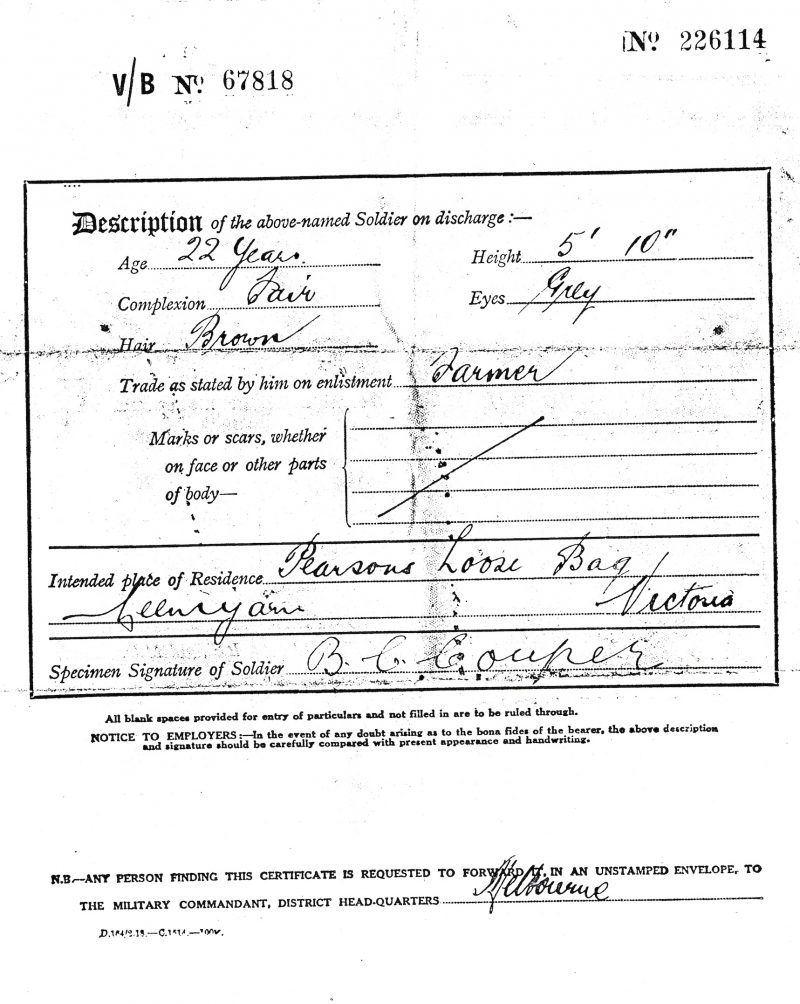 No. 226114
V/B No. 67818
Description of the above-named Soldier on discharge:—
Age 22 Years. Height 5' 10"
Complexion Fair Eyes Grey
Hair Brown
Trade as stated by him on enlistment Farmer
Marks or scars, whether
on face or other parts
of body—
Intended place of Residence Pearsons Loose Bag
Victoria
Specimen Signature of Soldier B. C. Couper
All blank spaces provided for entry of particulars and not filled in are to be ruled through.
NOTICE TO EMPLOYERS:—In the event of any doubt arising as to the bona fides of the bearer, the above description
and signature should be carefully compared with present appearance and handwriting.
N.B.—ANY PERSON FINDING THIS CERTIFICATE IS REQUESTED TO FORWARD IT, IN AN UNSTAMPED ENVELOPE, TO
THE MILITARY COMMANDANT, DISTRICT HEAD-QUARTERS Melbourne